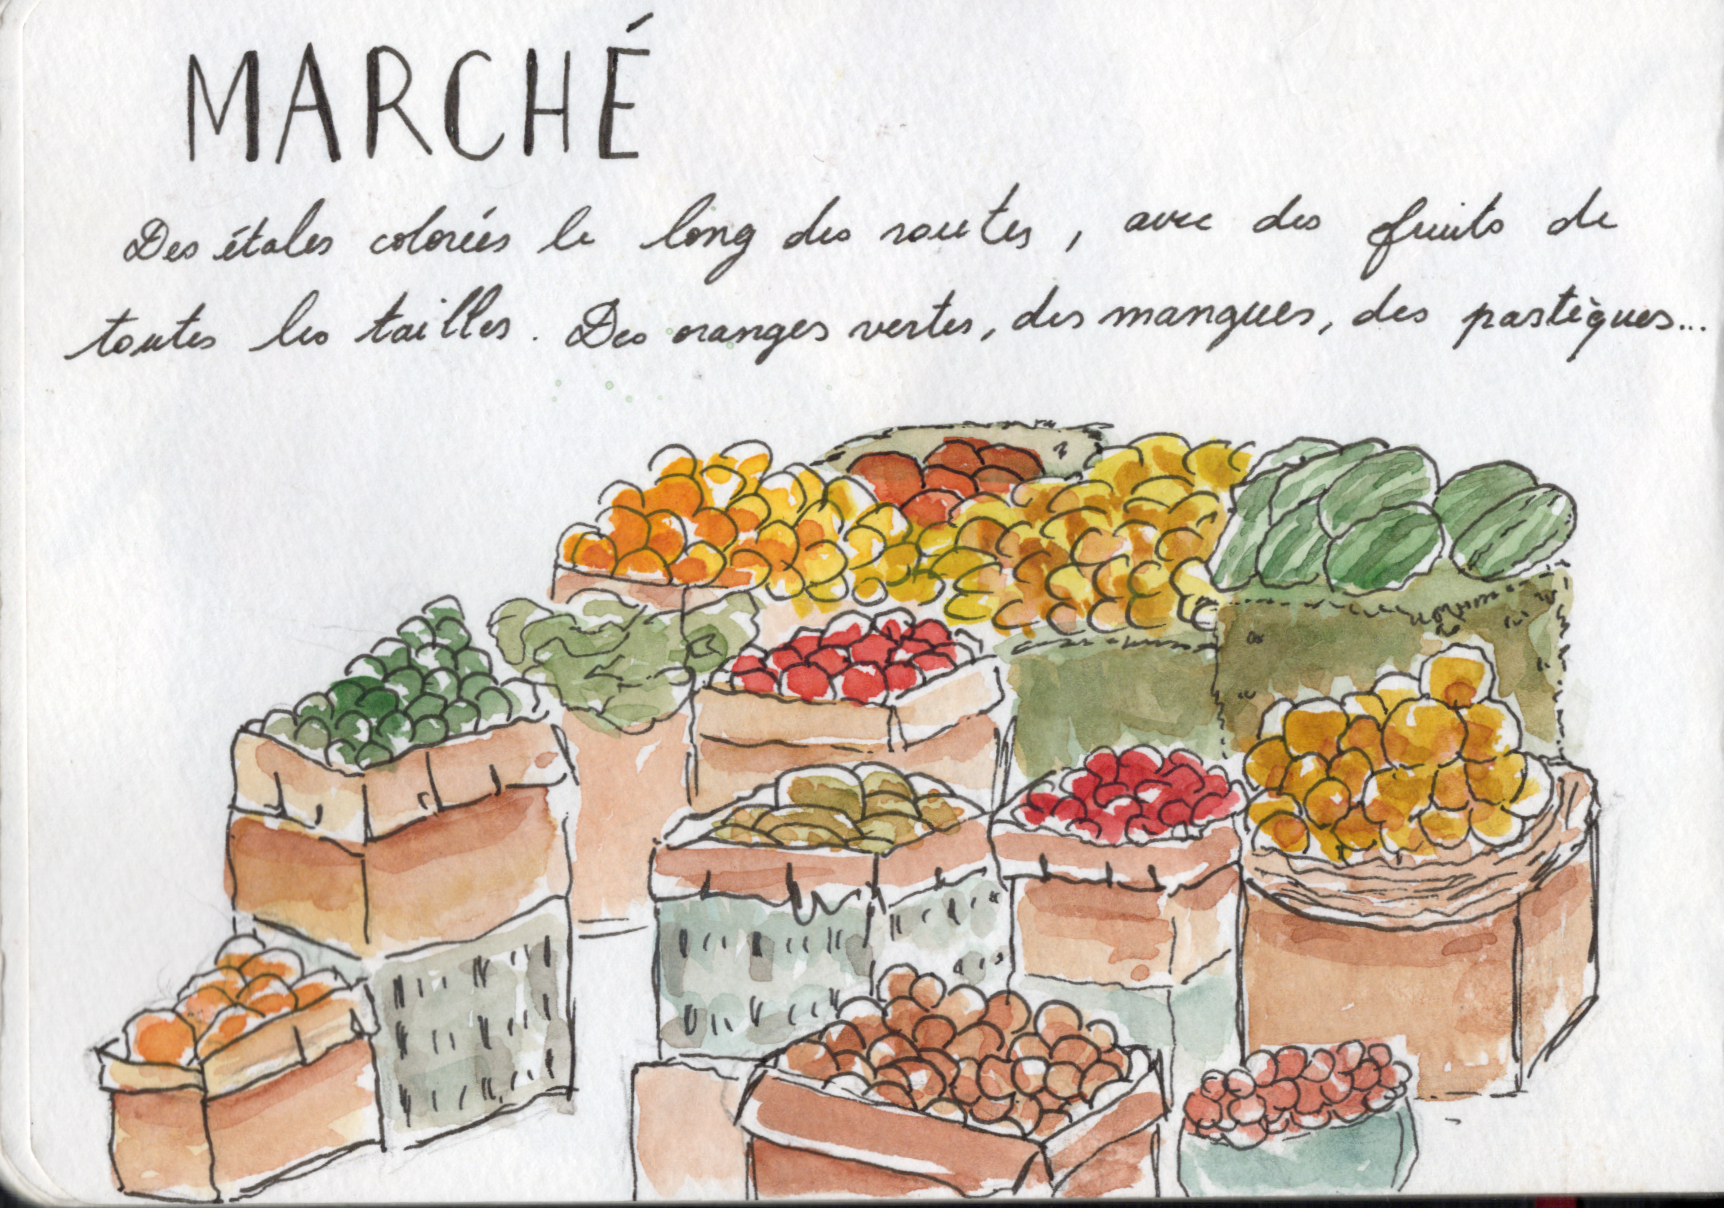 MARCHÉ
Des étales colorées le long des routes, avec des fruits de
toutes les tailles. Des oranges vertes, des mangues, des pastèques...